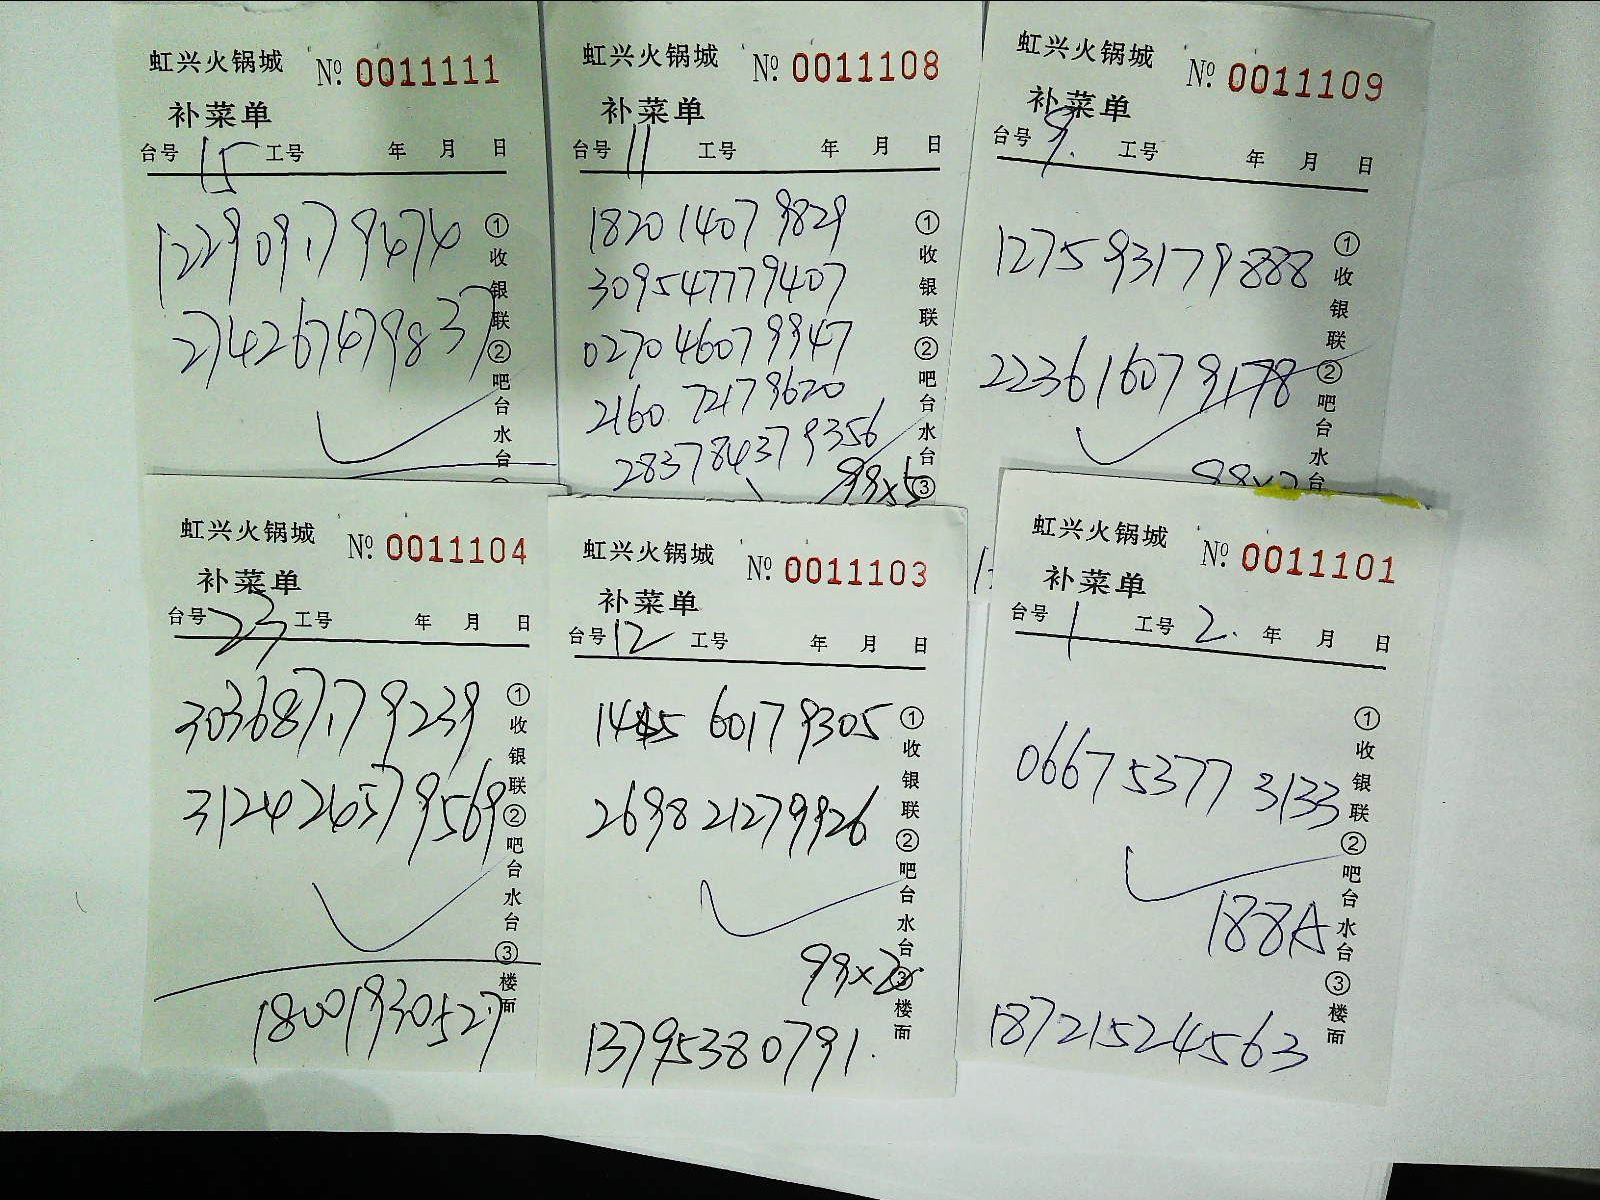 虹兴火锅城 №. 0011111
补菜单
台号 15 工号 年 月 日
122909179474
274267479837
①收银联②吧台水台
虹兴火锅城 №. 0011108
补菜单
台号 11 工号 年 月 日
182014079829
309547779407
027046079947
216072179620
283784379356
99x5
①收银联②吧台水台③
虹兴火锅城 №. 0011109
补菜单
台号 9. 工号 年 月 日
127593179888
223616079178
99x2
①收银联②吧台水台
虹兴火锅城 №. 0011104
补菜单
台号 23 工号 年 月 日
303687179239
312424579569
18001930527
①收银联②吧台水台③楼面
虹兴火锅城 №. 0011103
补菜单
台号 12 工号 年 月 日
1445 60179305
2698 21279926
99x2
13795380791.
①收银联②吧台水台③楼面
虹兴火锅城 №. 0011101
补菜单
台号 1 工号 2. 年 月 日
0667 5377 3133
188A
18721524563
①收银联②吧台水台③楼面